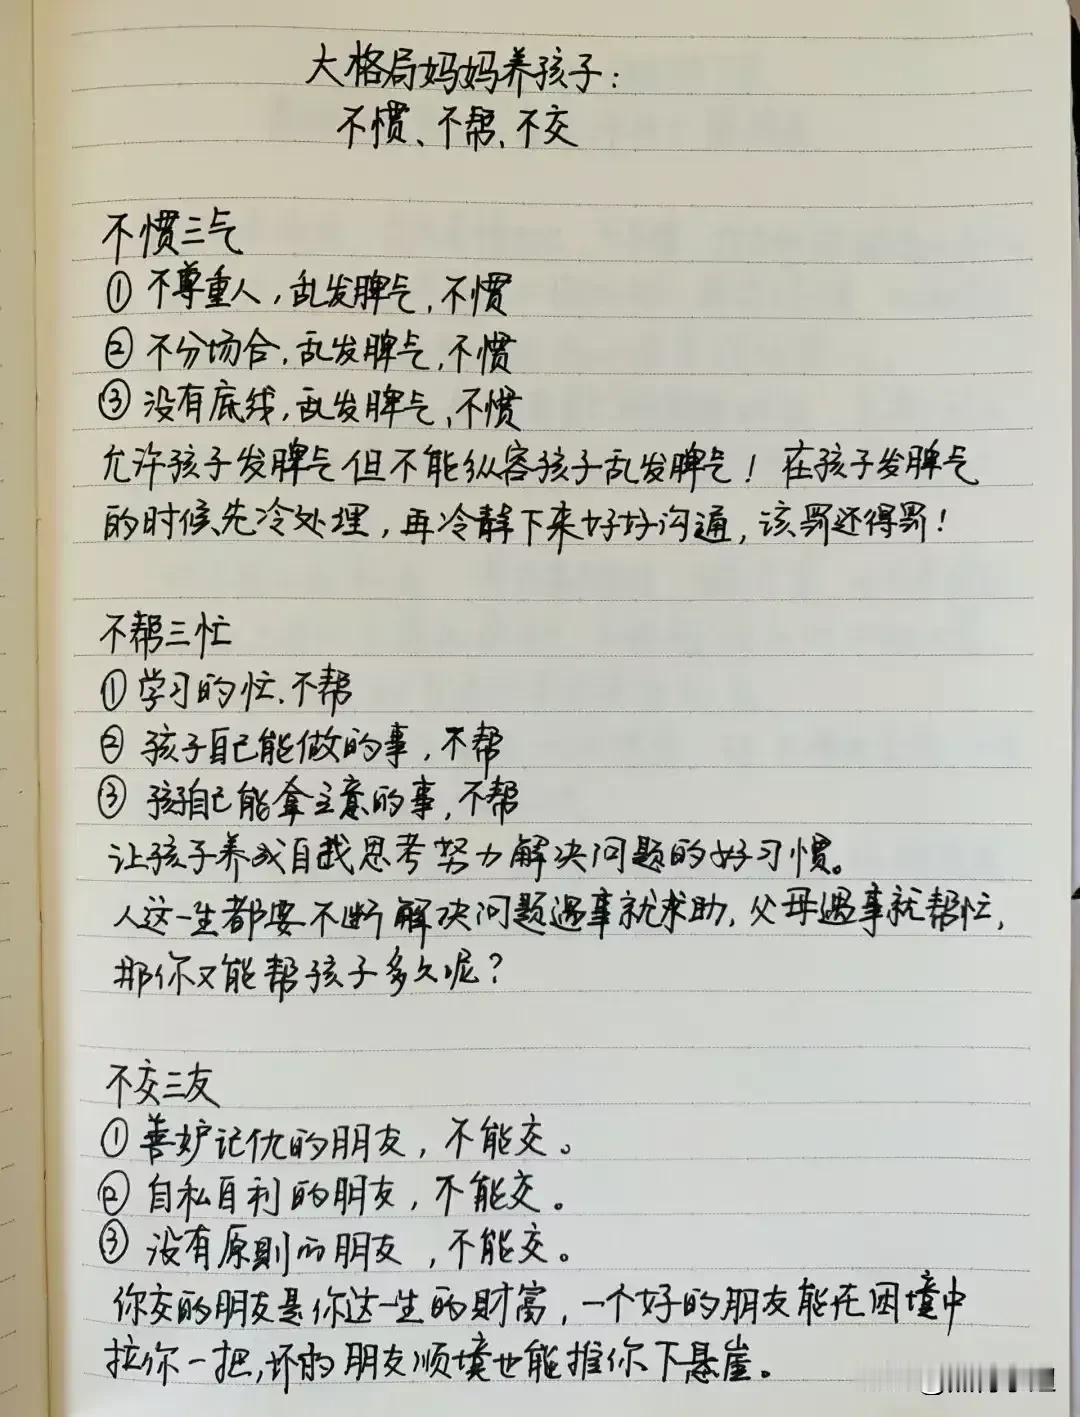 大格局妈妈养孩子：
不惯、不帮、不交
不惯三气
① 不尊重人，乱发脾气，不惯
② 不分场合，乱发脾气，不惯
③ 没有底线，乱发脾气，不惯
允许孩子发脾气但不能纵容孩子乱发脾气！在孩子发脾气
的时候先冷处理，再冷静下来好好沟通，该罚还得罚！
不帮三忙
① 学习的忙、不帮
② 孩子自己能做的事，不帮
③ 孩子自己能拿主意的事，不帮
让孩子养成自我思考努力解决问题的好习惯。
人这一生都要不断解决问题遇事就求助，父母遇事就帮忙，
那你又能帮孩子多久呢？
不交三友
① 善妒记仇的朋友，不能交。
② 自私自利的朋友，不能交。
③ 没有原则的朋友，不能交。
你交的朋友是你这一生的财富，一个好的朋友能在困境中
拉你一把，坏的朋友顺境也能推你下悬崖。